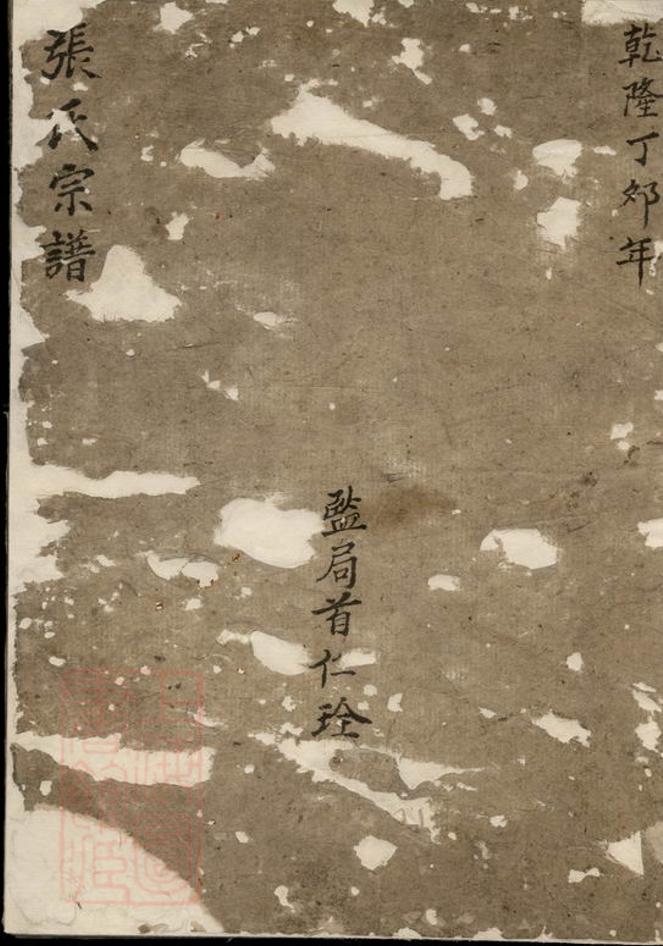 乾隆丁夘年
監局首仁玲
張氏宗譜